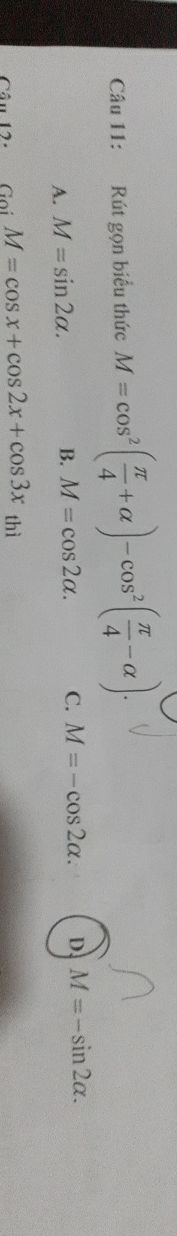 Câu 11: Rút gọn biểu thức M = cos²(π/4 + α) − cos²(π/4 − α).
A. M = sin 2α. B. M = cos 2α. C. M = −cos 2α. D. M = −sin 2α.
Câu 12: Gọi M = cos x + cos 2x + cos 3x thì